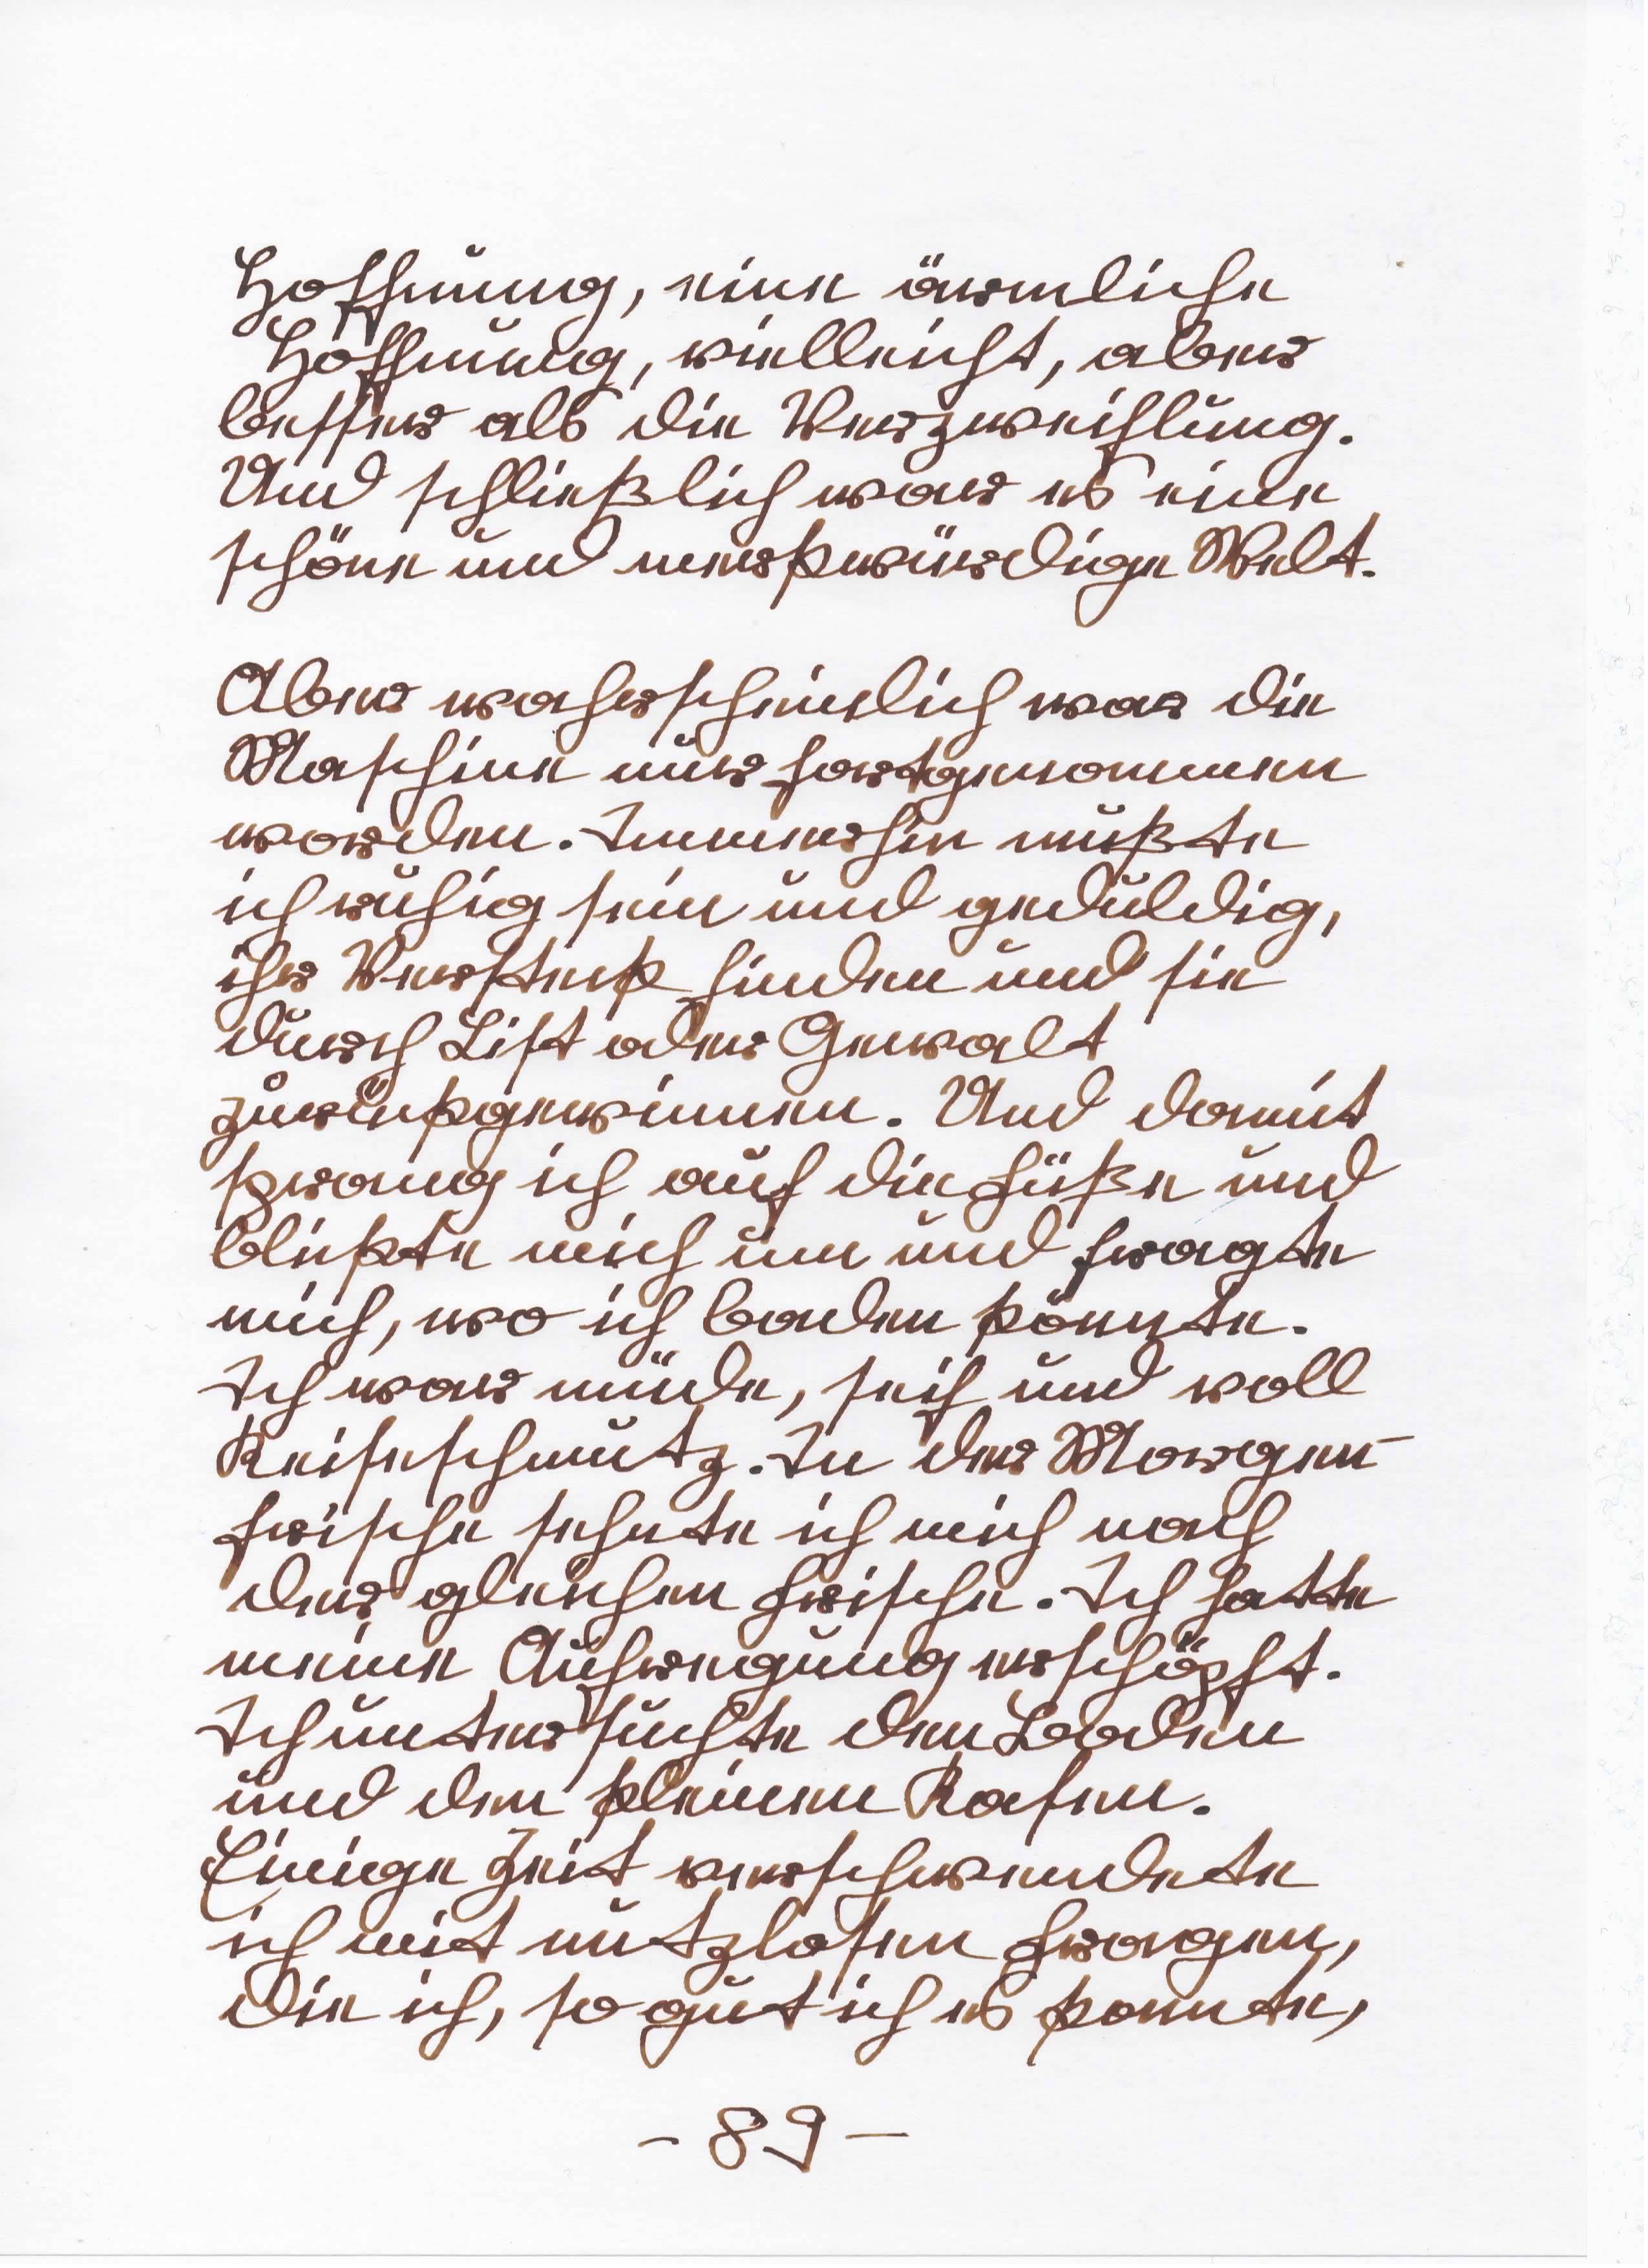 Hoffnung, eine ärmliche
Hoffnung, vielleicht, aber
besser als die Verzweiflung.
Und schließlich war es eine
schöne und merkwürdige Welt.
Aber wahrscheinlich war die
Maschine nur fortgenommen
worden. Immerhin mußte
ich ruhig sein und geduldig,
ihr Versteck finden und sie
durch List oder Gewalt
zurückgewinnen. Und damit
sprang ich auf die Füße und
blickte mich um und fragte
mich, wo ich baden könnte.
Ich war müde, steif und voll
Reiseschmutz. In der Morgen-
frische sehnte ich mich nach
der gleichen Frische. Ich hatte
meine Aufregung erschöpft.
Ich untersuchte den Boden
und den kleinen Rasen.
Einige Zeit verschwendete
ich mit nutzlosen Fragen,
die ich, so gut ich es konnte,
- 89 -